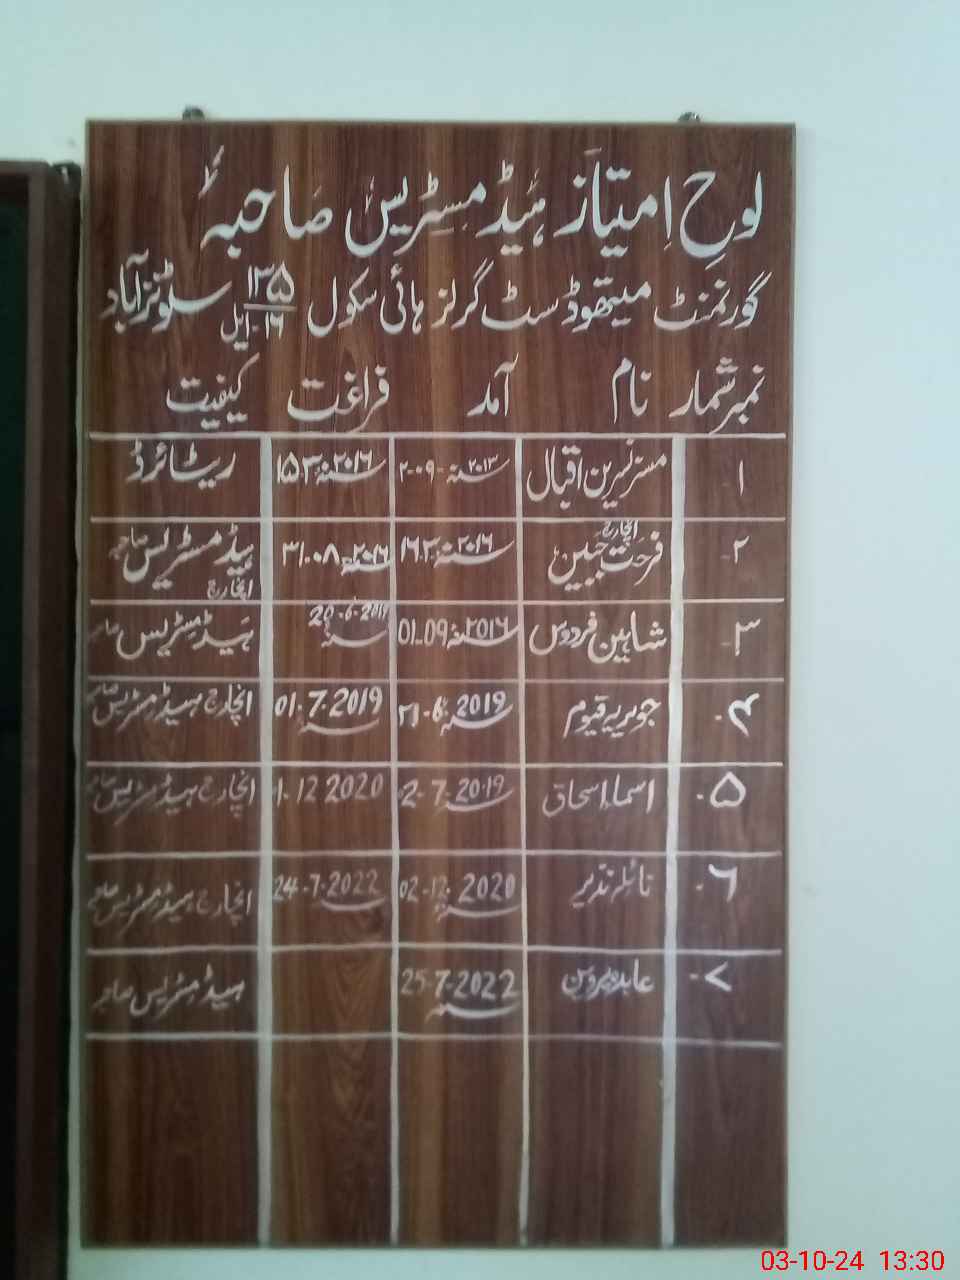 لوحِ امتیاز ہیڈ مسٹریس صاحبہ
گورنمنٹ میتھوڈسٹ گرلز ہائی سکول ۱۳۵/۱۶-۱۰ایل سٹونزآباد
نمبر شمار نام آمد فراغت کیفیت
۱ مسز نسرین اقبال ۲-۰۹-۲۰۱۳ ۱۵.۳.۲۰۱۶ ریٹائرڈ
۲- فرحت جبین انچارج ۱۶.۳.۲۰۱۶ ۳۱.۰۸.۲۰۱۶ ہیڈ مسٹریس صاحبہ انچارج
۳- شاہین فردوس 01.09.2016 20-6-2019 ہیڈ مسٹریس صاحبہ
۴- جویریہ قیوم 21-6-2019 01.7.2019 انچارج ہیڈ مسٹریس صاحبہ
۵- اسماء اسحاق 02-7-2019 1-12 2020 انچارج ہیڈ مسٹریس صاحبہ
۶- نائلہ نذیر 02-12-2020 24-7-2022 انچارج ہیڈ مسٹریس صاحبہ
۷- عابدہ پروین 25-7-2022 ہیڈ مسٹریس صاحبہ
03-10-24 13:30